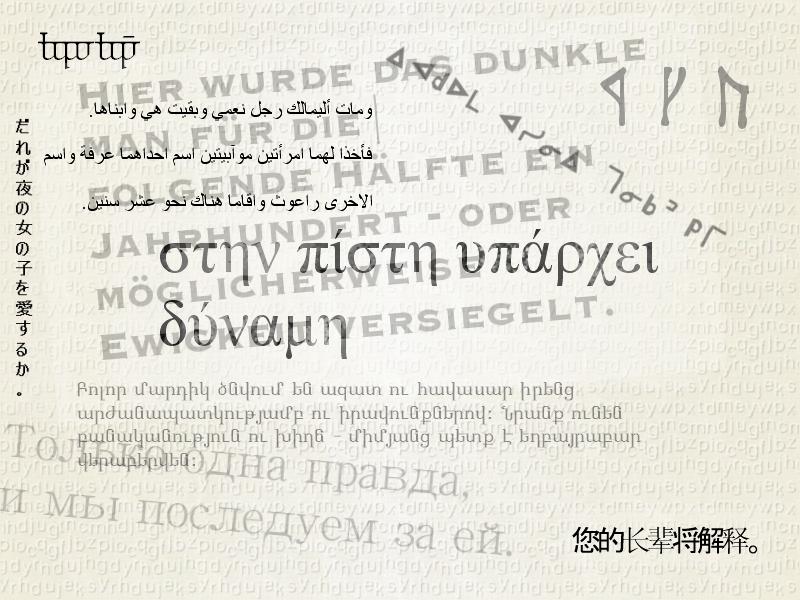 Hier wurde das dunkle
man für die
folgende Hälfte ein
Jahrhundert - oder
möglicherweise
Ewigkeit versiegelt.
ومات أليمالك رجل نعمي وبقيت هي وابناها.
فأخذا لهما امرأتين موآبيتين اسم احداهما عرفة واسم
الاخرى راعوث واقاما هناك نحو عشر سنين.
だれが夜の女の子を愛するか。
στην πίστη υπάρχει
δύναμη
Բոլոր մարդիկ ծնվում են ազատ ու հավասար իրենց
արժանապատկությամբ ու իրավունքներով։ Նրանք ունեն
բանականություն ու խիղճ - միմյանց պետք է եղբայրաբար
վերաբերվեն։
Только одна правда,
и мы последуем за ей.
您的长辈将解释。